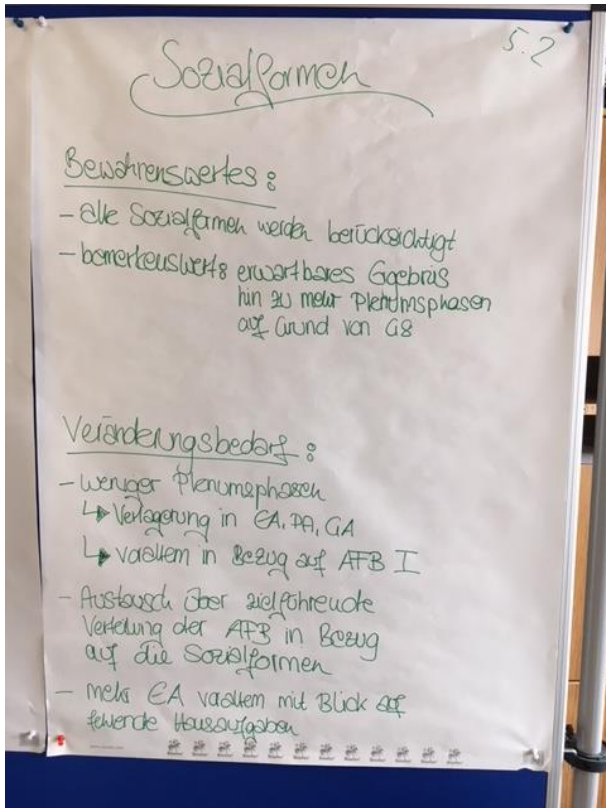 5.2
Sozialformen
Bewahrenswertes:
- alle Sozialformen werden berücksichtigt
- bemerkenswert: erwartbares Ergebnis
hin zu mehr Plenumsphasen
auf Grund von G8
Veränderungsbedarf:
- weniger Plenumsphasen
↳ Verlagerung in EA, PA, GA
↳ vorallem in Bezug auf AFB I
- Austausch über zielführende
Verteilung der AFB in Bezug
auf die Sozialformen
- mehr EA vorallem mit Blick auf
fehlende Hausaufgaben